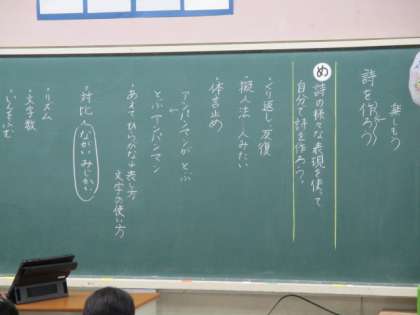 楽しもう
詩を作ろう
め
詩の様々な表現を使って
自分で詩を作ろう。
・くり返し、反復
・擬人法…人みたい
・体言止め
アンパンマンがとぶ
とぶアンパンマン
・あえてひらがな→表し方
文字の使い方
・対比(ながい みじかい)
・リズム
・文字数
・いんをふむ